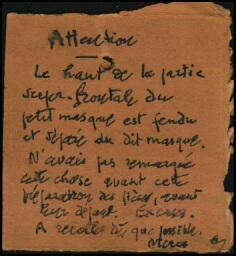 Attention
Le haut de la partie
super-frontale du
petit masque est fendu
et séparé du dit masque.
N'avais pas remarqué
cette chose avant cette
préparation des pièces, avant
leur départ. Excuses.
A recoller dès que possible.
Merci